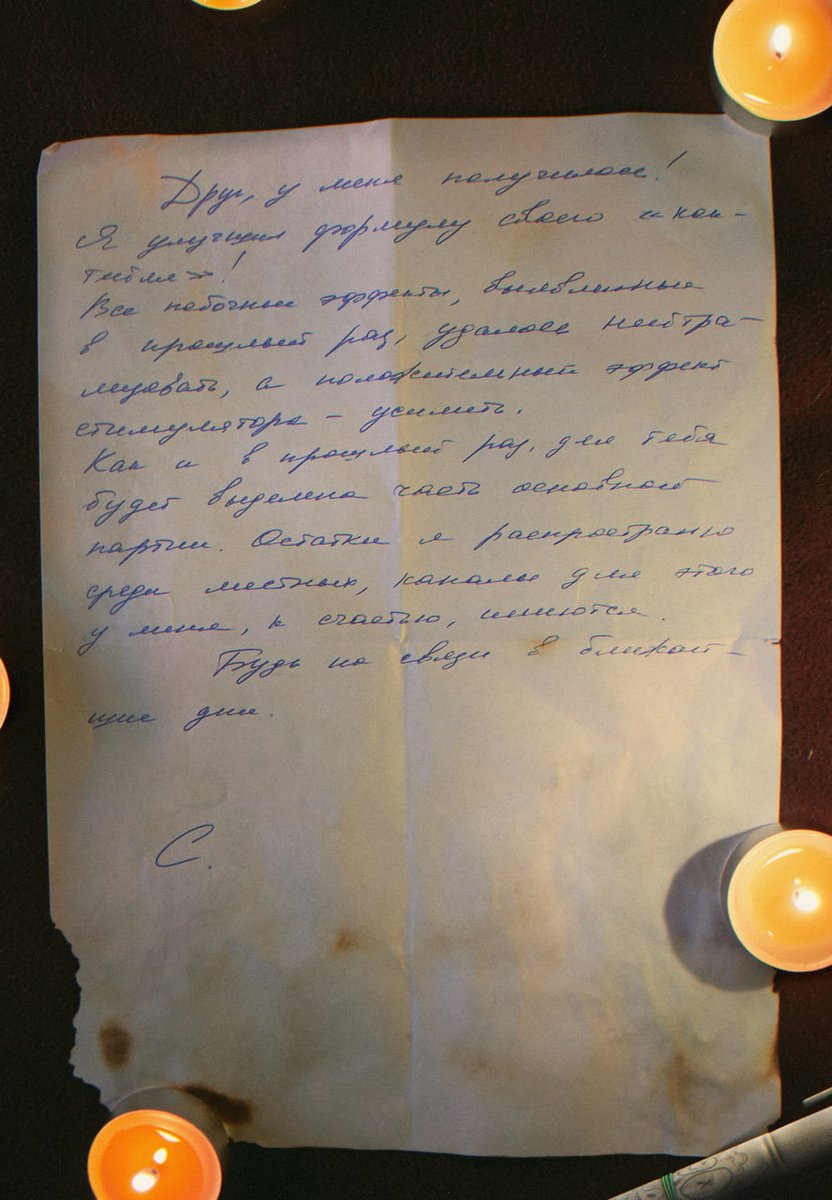 Друг, у меня получилось!
Я улучшил формулу своего «кок-
тейля»!
Все побочные эффекты, выявленные
в прошлый раз, удалось нейтра-
лизовать, а положительный эффект
стимулятора – усилить.
Как и в прошлый раз, для тебя
будет выделена часть основной
партии. Остатки я распространю
среди местных, каналы для этого
у меня, к счастью, имеются.
Будь на связи в ближай-
шие дни.
С.